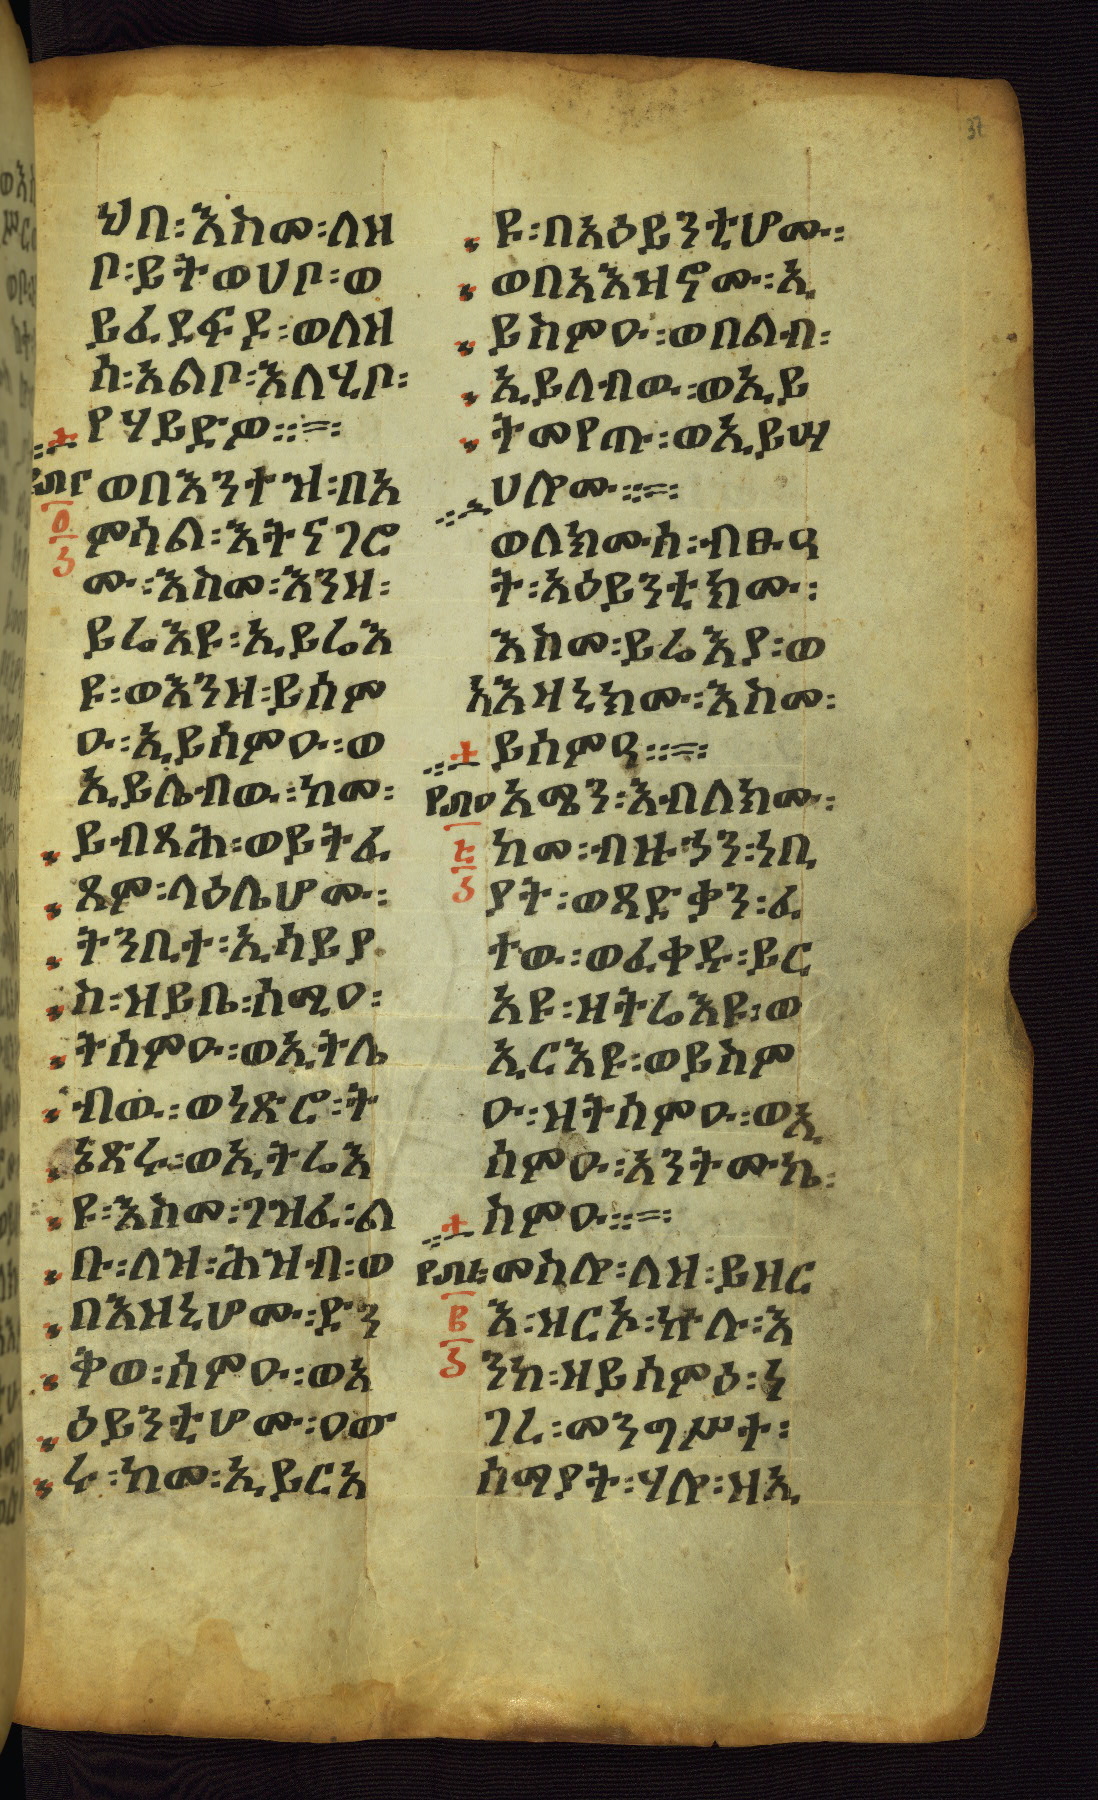 37
ህበ፡እስመ፡ለዘ
ቦ፡ይትወሀቦ፡ወ
ይፈደፍዶ፡ወለዘ
ሰ፡አልቦ፡እለሂቦ፡
የሃይድዎ።=፡
፻፴፫ ወበእንተዝ፡በአ
ምሳል፡እትናገሮ
ሙ፡እስመ፡እንዘ፡
ይሬእዩ፡ኢይሬእ
ዩ፡ወእንዘ፡ይሰም
ዑ፡ኢይሰምዑ፡ወ
ኢይሌብው፡ከመ፡
ይብጻሕ፡ወይትፈ
ጸም፡ላዕሌሆሙ፡
ትንቢተ፡ኢሳይያ
ስ፡ዘይቤ፡ሰሚዐ፡
ትሰምዑ፡ወኢትሌ
ብው፡ወነጽሮ፡ት
ኔጽሩ፡ወኢትሬእ
ዩ፡እስመ፡ገዝፈ፡ል
ቡ፡ለዝ፡ሕዝብ፡ወ
በእዝኒሆሙ፡ድን
ቅወ፡ሰምዑ፡ወአ
ዕይንቲሆሙ፡ዐው
ሩ፡ከመ፡ኢይርአ
ዩ፡በአዕይንቲሆሙ፡
ወበአእዝኖሙ፡ኢ
ይስምዑ፡ወበልብ፡
ኢይለብው፡ወኢይ
ትመየጡ፡ወኢይሣ
ሀሎሙ።=፡
ወለክሙሰ፡ብፁዓ
ት፡አዕይንቲክሙ፡
እስመ፡ይሬእያ፡ወ
አእዛኒክሙ፡እስመ፡
ይሰምዓ።=፡
አሜን፡እብለክሙ፡
ከመ፡ብዙኃን፡ነቢ
ያት፡ወጻድቃን፡ፈ
ተው፡ወፈቀዱ፡ይር
አዩ፡ዘትሬእዩ፡ወ
ኢርእዩ፡ወይስም
ዑ፡ዘትሰምዑ፡ወኢ
ሰምዑ፡አንትሙኬ፡
ስምዑ።=፡
መስሎ፡ለዘ፡ይዘር
እ፡ዘርኦ፡ኵሉ፡እ
ንከ፡ዘይሰምዕ፡ነ
ገረ፡መንግሥተ፡
ሰማያት፡ሃሎ፡ዘኢ